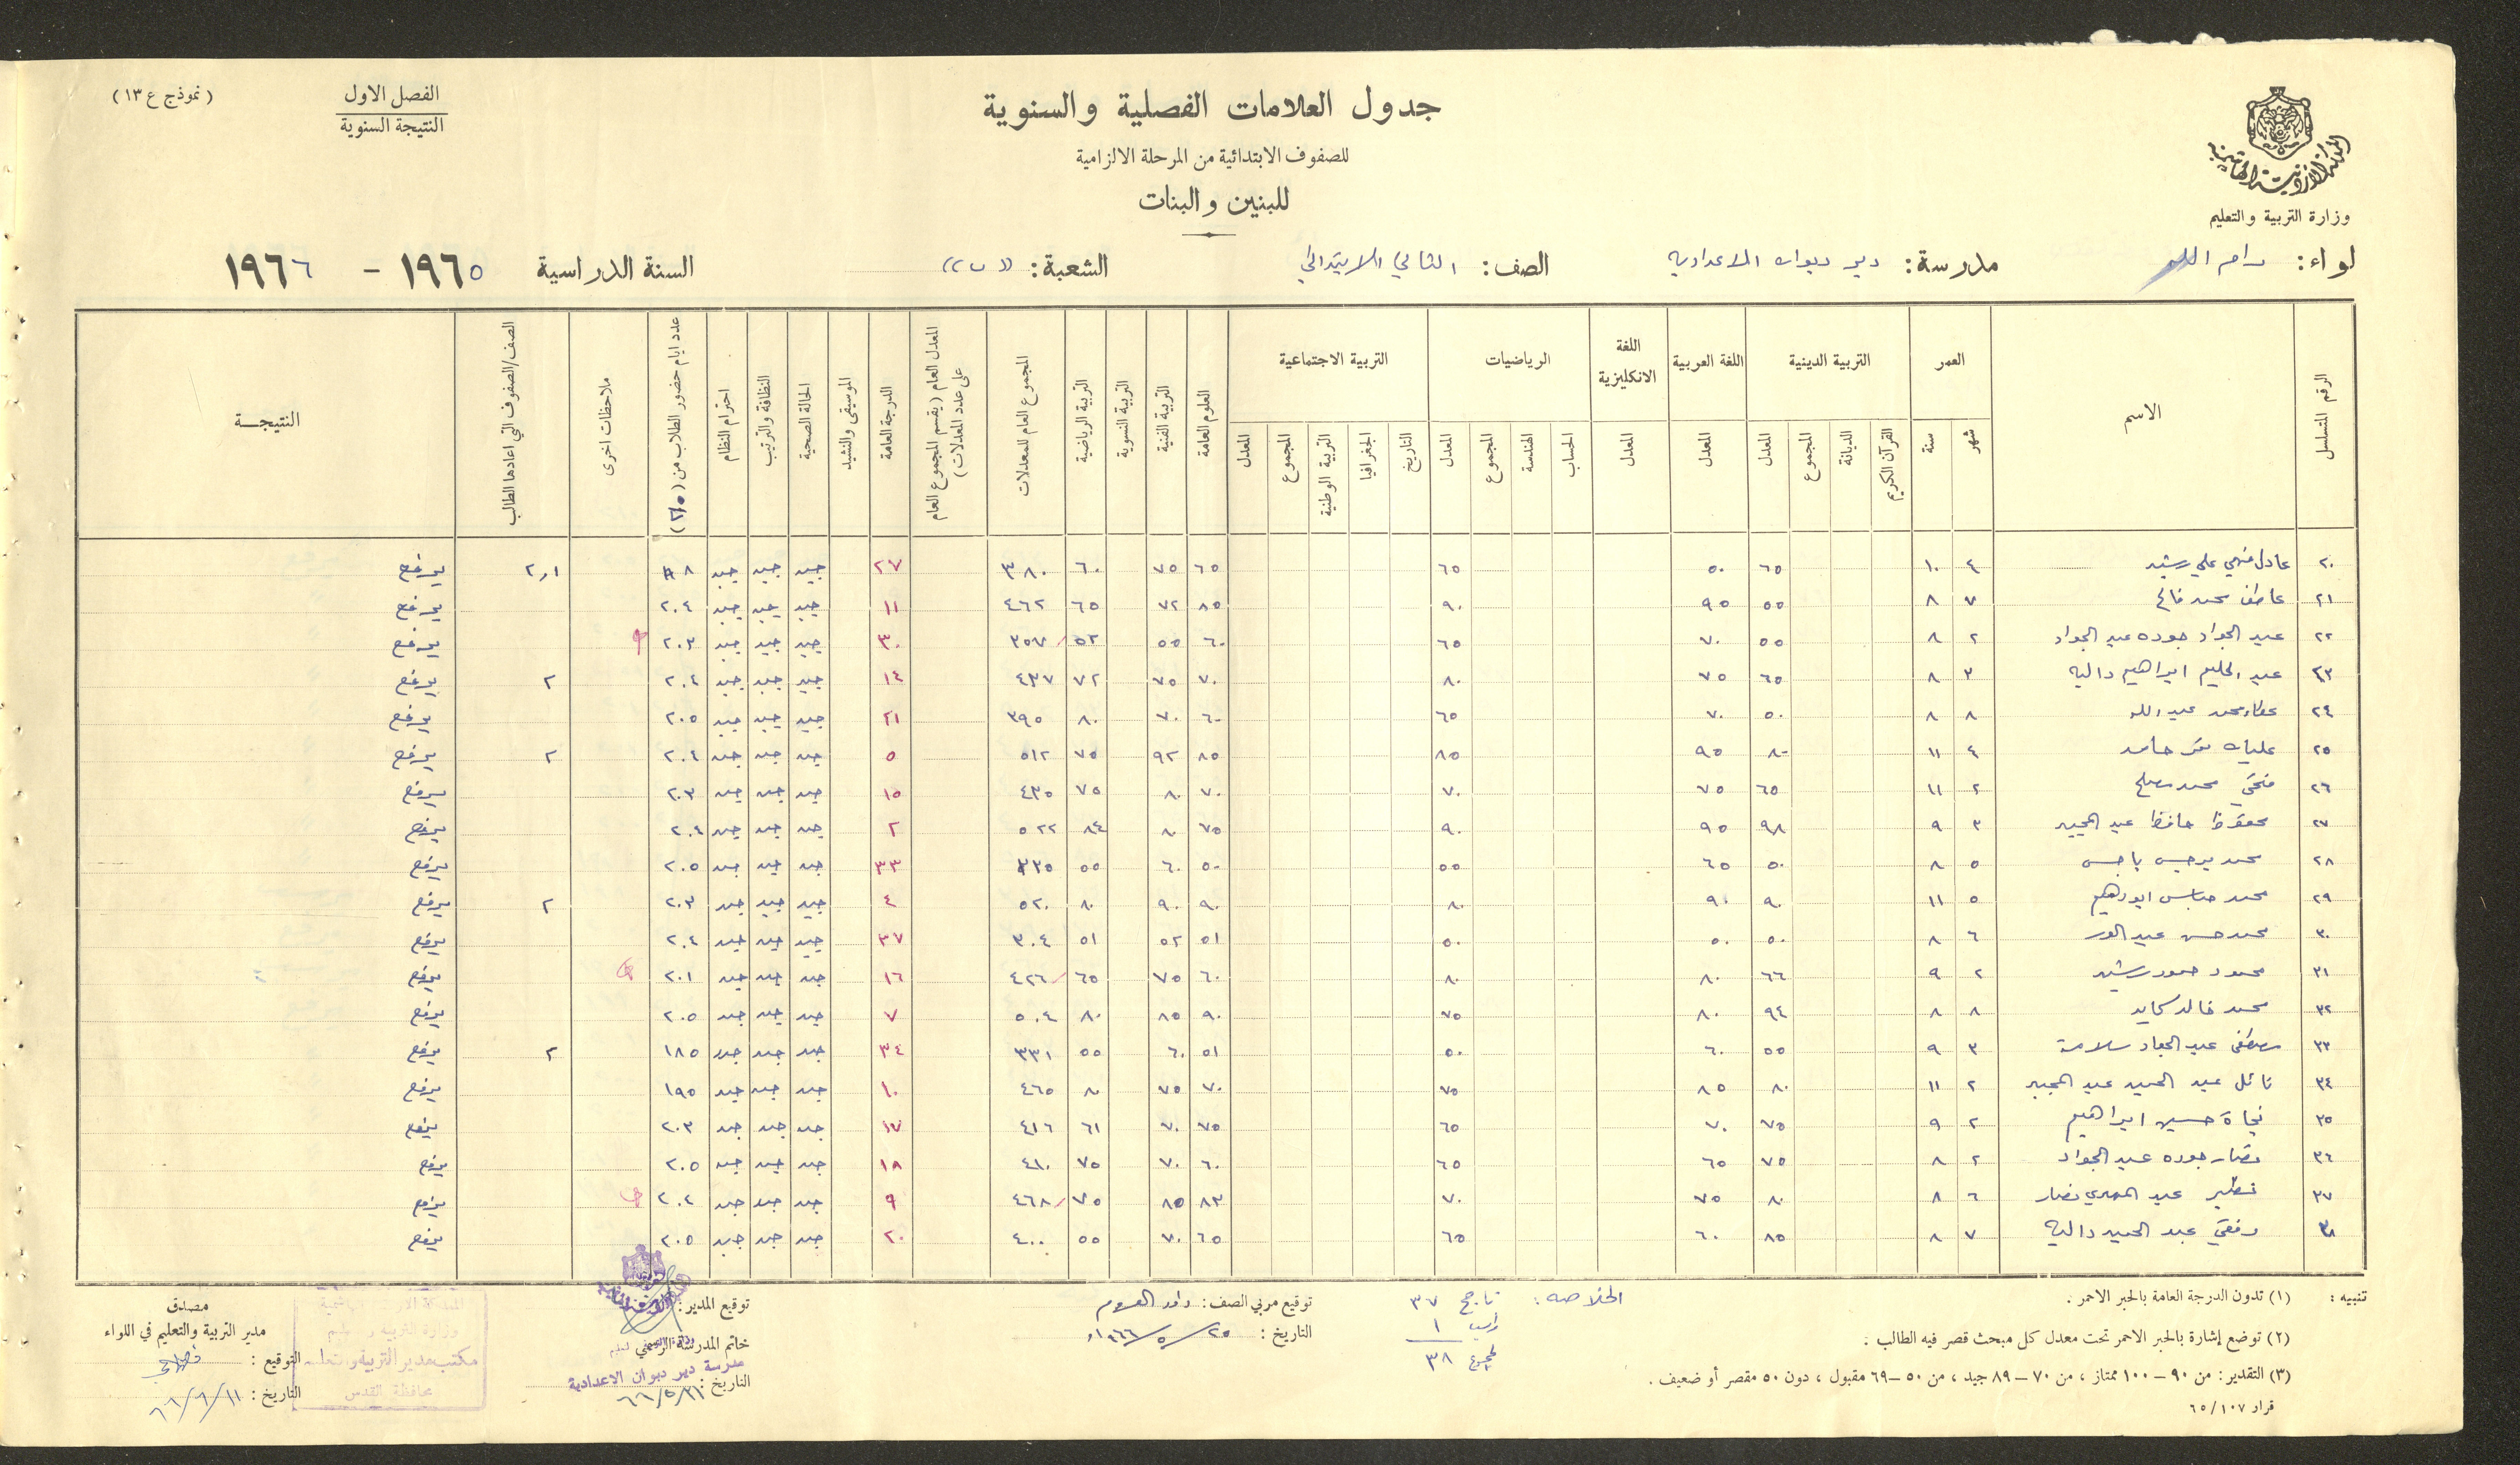 (نموذج ع ١٣)
الفصل الاول
النتيجة السنوية
جدول العلامات الفصلية والسنوية
للصفوف الابتدائية من المرحلة الالزامية
للبنين والبنات
المملكة الاردنية الهاشمية
وزارة التربية والتعليم
لواء: رام الله مدرسة: دير ديوان الاعدادية الصف: الثاني الابتدائي الشعبة: السنة الدراسية ١٩٦٥ - ١٩٦٦
الرقم المتسلسل الاسم العمر التربية الدينية اللغة العربية اللغة الانكليزية الرياضيات التربية الاجتماعية العلوم العامة التربية الفنية التربية النسوية التربية الرياضية المجموع العام للمعدلات المعدل العام (يقسم المجموع العام على عدد المعدلات) الدرجة العامة الموسيقى والنشيد الحالة الصحية النظافة والترتيب احترام النظام عدد ايام حضور الطلاب من ملاحظات اخرى الصف/الصفوف التي اعادها الطالب النتيجــة
شهر سنة القرآن الكريم الديانة المجموع المعدل المعدل المعدل الحساب الهندسة المجموع المعدل التاريخ الجغرافيا التربية الوطنية المجموع المعدل
٢٠ عادل فهمي علي رشيد ٤ ١٠ ٦٥ ٥٠ ٦٥ ٦٥ ٧٥ ٦٠ ٣٨٠ ٢٧ جيد جيد جيد ٢،١ يرفع
٢١ عاطف محمد فالح ٧ ٨ ٥٥ ٩٥ ٩٠ ٨٥ ٧٢ ٦٥ ٤٦٢ ١١ جيد جيد جيد ٢٠٤ يرفع
٢٢ عبد الجواد جوده عبد الجواد ٢ ٨ ٥٥ ٧٠ ٦٥ ٦٠ ٥٥ ٥٢ ٣٥٧ ٣٠ جيد جيد جيد ٢٠٣ يرفع
٢٣ عبد الحليم ابراهيم داليه ٣ ٨ ٦٥ ٧٥ ٨٠ ٧٠ ٧٥ ٧٢ ٤٣٧ ١٤ جيد جيد جيد ٢٠٤ ٢ يرفع
٢٤ عطا محمد عبد الله ٨ ٨ ٥٠ ٧٠ ٦٥ ٦٠ ٧٠ ٨٠ ٣٩٥ ٢١ جيد جيد جيد ٢٠٥ يرفع
٢٥ عليان حامد ٤ ١١ ٨٠ ٩٥ ٨٥ ٨٥ ٩٢ ٧٥ ٥١٢ ٥ جيد جيد جيد ٢٠٤ ٢ يرفع
٢٦ فتحي محمد مصلح ٢ ١١ ٦٥ ٧٥ ٧٠ ٧٠ ٨٠ ٧٥ ٤٣٥ ١٥ جيد جيد جيد ٢٠٣ يرفع
٢٧ محفوظ حافظ عبد المجيد ٣ ٩ ٩٨ ٩٥ ٩٠ ٧٥ ٨٠ ٨٤ ٥٢٢ ٢ جيد جيد جيد ٢٠٤ يرفع
٢٨ محمد برجس ياجس ٥ ٨ ٥٠ ٦٥ ٥٥ ٥٠ ٦٠ ٥٥ ٣٣٥ ٣٣ جيد جيد جيد ٢٠٥ يرفع
٢٩ محمد عباس ابراهيم ٥ ١١ ٩٠ ٩٠ ٨٠ ٩٠ ٩٠ ٨٠ ٥٢٠ ٤ جيد جيد جيد ٢٠٣ ٢ يرفع
٣٠ محمد حسن عبد ٦ ٨ ٥٠ ٥٠ ٥٠ ٥١ ٥٢ ٥١ ٣٠٤ ٣٧ جيد جيد جيد ٢٠٤ يرفع
٣١ محمود حمود رشيد ٢ ٩ ٦٦ ٨٠ ٨٠ ٦٠ ٧٥ ٦٥ ٤٢٦ ١٦ جيد جيد جيد ٢٠١ يرفع
٣٢ محمد خالد كايد ٨ ٨ ٩٤ ٨٠ ٧٥ ٩٠ ٨٥ ٨٠ ٥٠٤ ٧ جيد جيد جيد ٢٠٥ يرفع
٣٣ مصطفى عبد الجواد سلامة ٣ ٩ ٥٥ ٦٠ ٥٠ ٥١ ٦٠ ٥٥ ٣٣١ ٣٤ جيد جيد جيد ١٨٥ ٢ يرفع
٣٤ نائل عبد الحميد عبد المجيد ٢ ١١ ٨٠ ٨٥ ٧٥ ٧٠ ٧٥ ٨٠ ٤٦٥ ١٠ جيد جيد جيد ١٩٥ يرفع
٣٥ نجاة حسين ابراهيم ٢ ٩ ٧٥ ٧٠ ٦٥ ٧٥ ٧٠ ٦١ ٤١٦ ١٧ جيد جيد جيد ٢٠٣ يرفع
٣٦ نصار جوده عبد الجواد ٢ ٨ ٧٥ ٦٥ ٦٥ ٦٠ ٧٠ ٧٥ ٤١٠ ١٨ جيد جيد جيد ٢٠٥ يرفع
٣٧ عبد المهدي نصار ٦ ٨ ٨٠ ٧٥ ٧٠ ٨٣ ٨٥ ٧٥ ٤٦٨ ٩ جيد جيد جيد ٢٠٤ يرفع
٣٨ عبد الحميد داليه ٧ ٨ ٨٥ ٦٠ ٦٥ ٦٥ ٧٠ ٥٥ ٤٠٠ ٢٠ جيد جيد جيد ٢٠٥ يرفع
تنبيه: (١) تدون الدرجة العامة بالحبر الاحمر.
(٢) توضع إشارة بالحبر الاحمر تحت معدل كل مبحث قصر فيه الطالب.
(٣) التقدير: من ٩٠ - ١٠٠ ممتاز، من ٧٠ - ٨٩ جيد، من ٥٠ - ٦٩ مقبول، دون ٥٠ مقصر أو ضعيف.
قرار ٦٥/١٠٧
الخلاصه: ناجح ٣٧
راسب ١
المجموع ٣٨
توقيع مربي الصف:
التاريخ: ٢٥/٥/١٩٦٦
توقيع المدير:
خاتم المدرسة الرسمي
مدرسة دير ديوان الاعدادية
التاريخ: ٣١/٥/٦٦
المملكة الاردنية الهاشمية
وزارة التربية والتعليم
مكتب مدير التربية والتعليم
محافظة القدس
مصدق
مدير التربية والتعليم في اللواء
التوقيع:
التاريخ: ١١/٦/٦٦